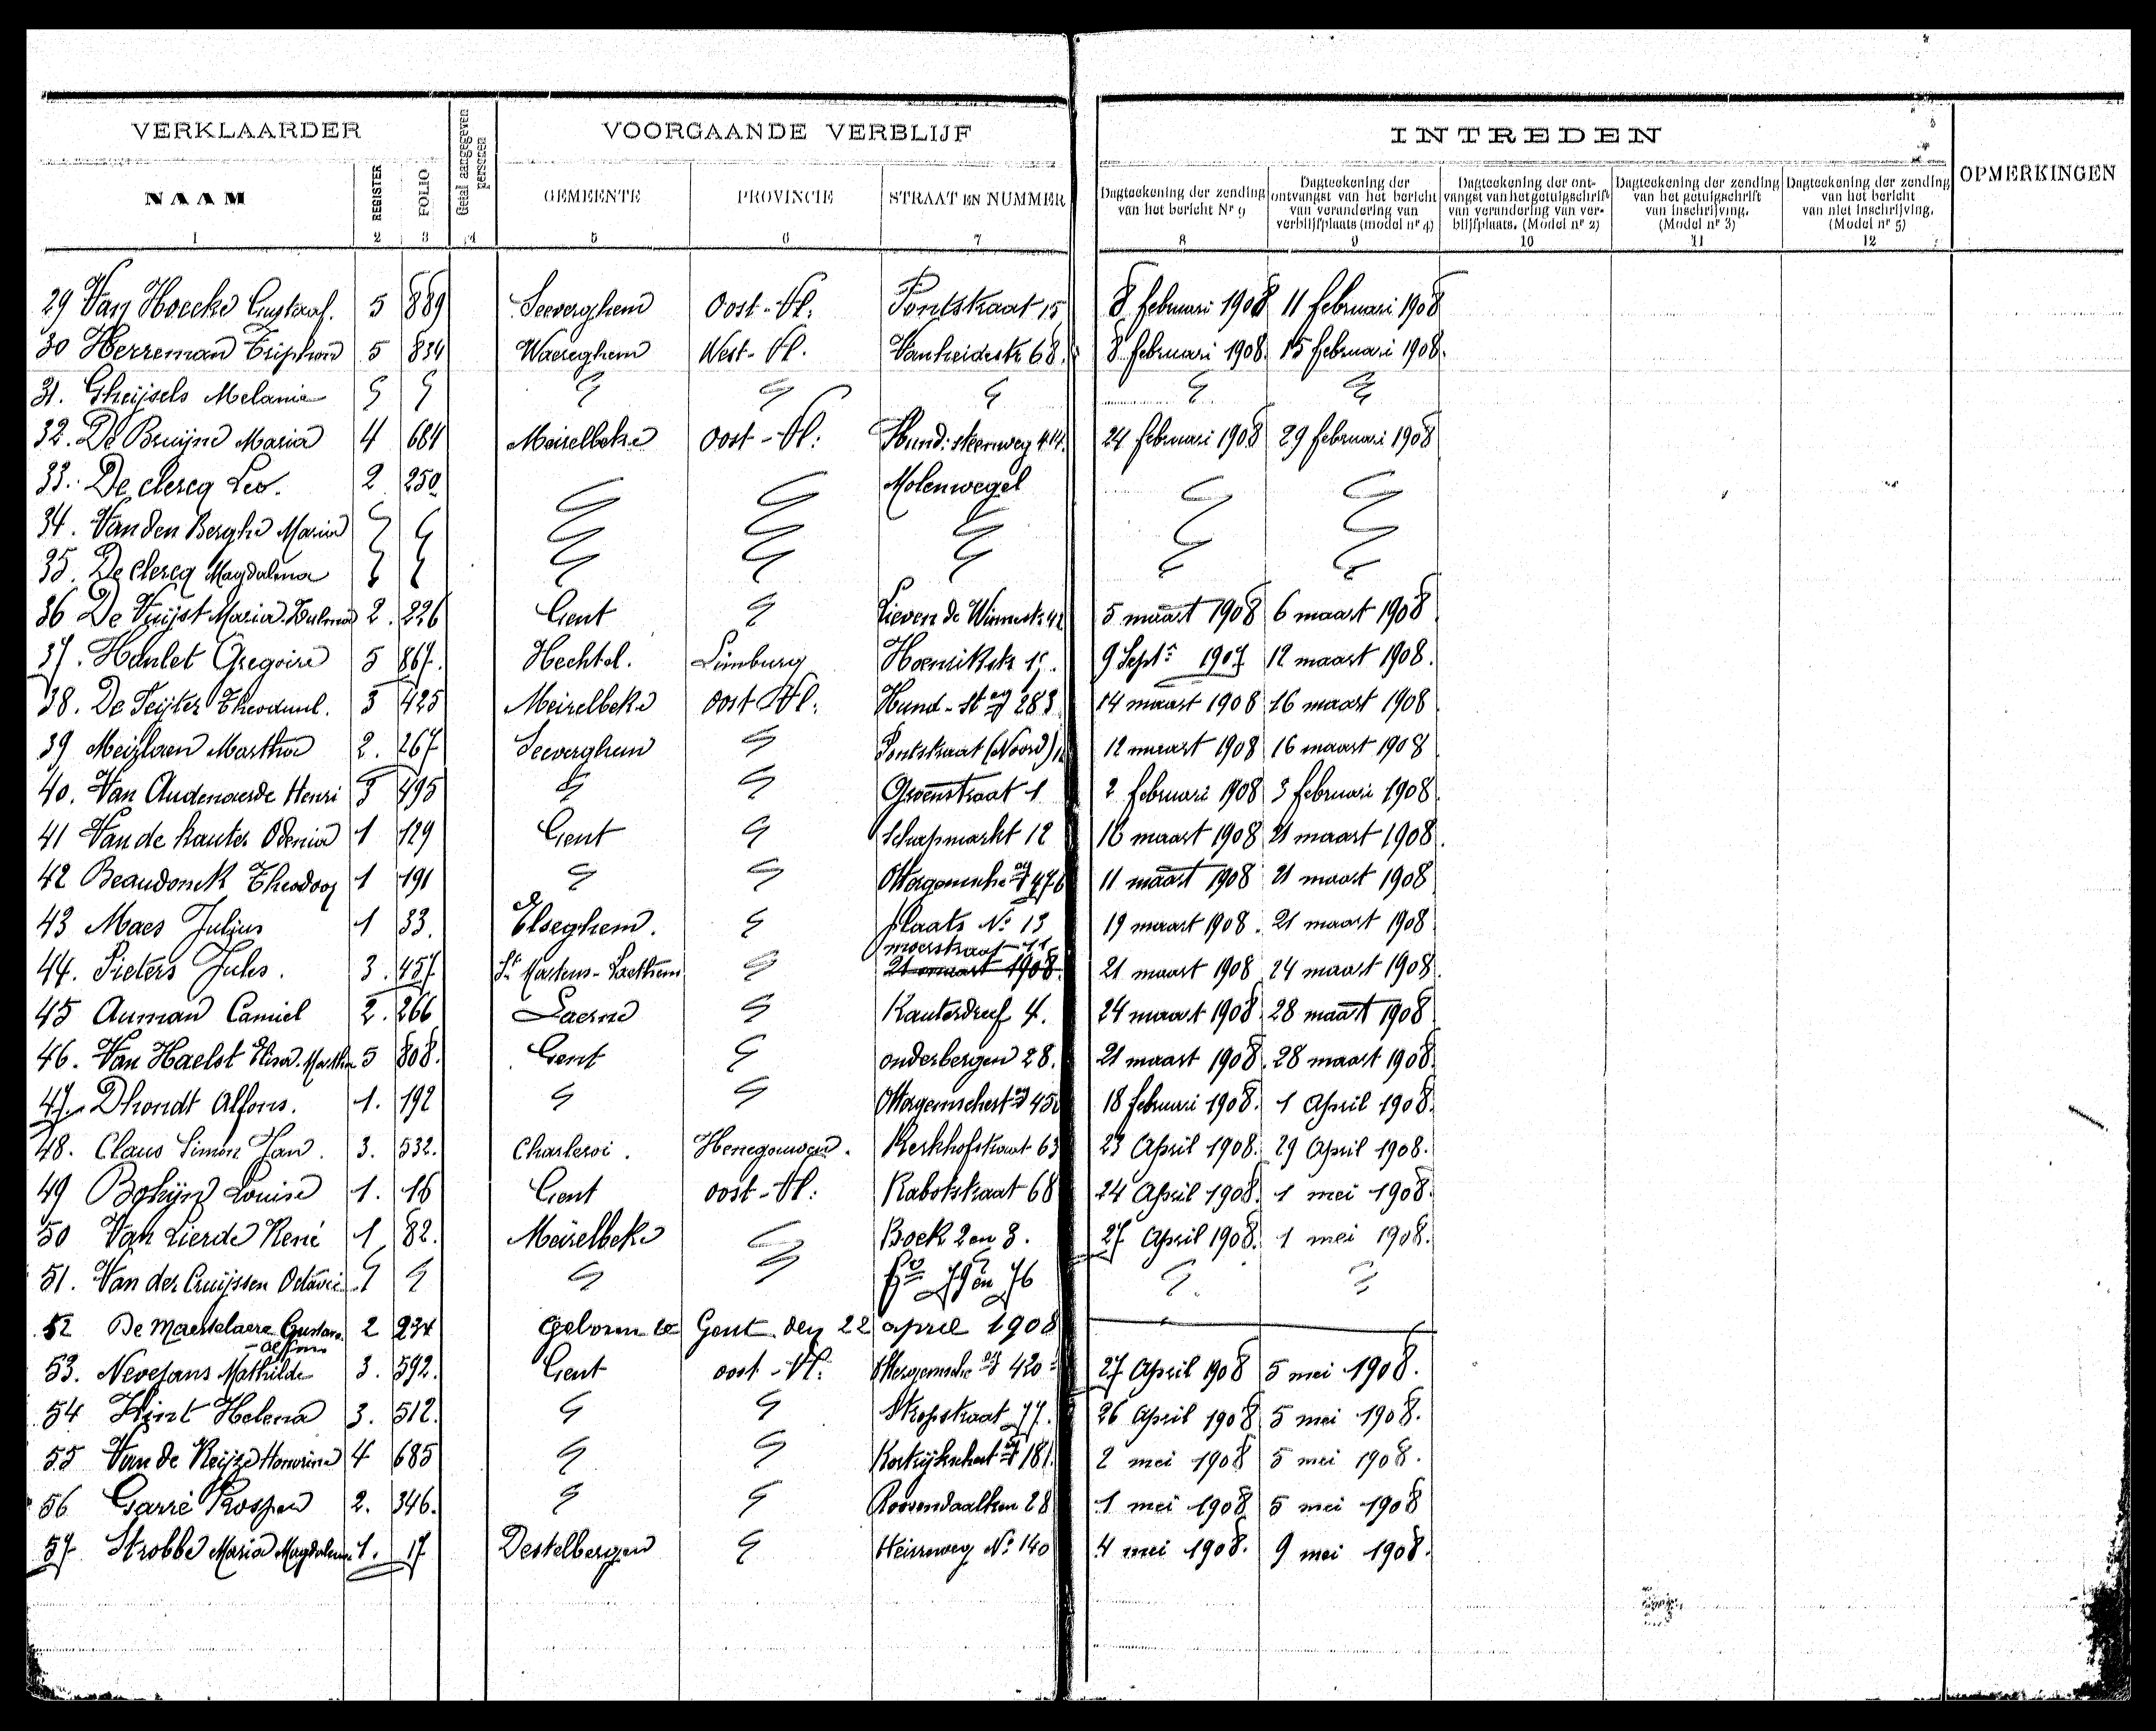 VERKLAARDER
Getal aangegeven personen
VOORGAANDE VERBLIJF
INTREDEN
OPMERKINGEN
NAAM REGISTER FOLIO GEMEENTE PROVINCIE STRAAT EN NUMMER
Dagteekening der zending van het bericht Nr 9
Dagteekening der ontvangst van het bericht van verandering van verblijfplaats (model nr 4)
Dagteekening der ontvangst van het getuigschrift van verandering van verblijfplaats. (Model nr 2)
Dagteekening der zending van het getuigschrift van inschrijving. (Model nr 3)
Dagteekening der zending van het bericht van niet inschrijving. (Model nr 5)
1 2 3 4 5 6 7 8 9 10 11 12
29 Van Hoecke Gustaaf. 5 889 Seeverghem Oost-Vl. Pontstraat 15 8 februari 1908 11 februari 1908
30 Herreman 5 834 Waereghem West-Vl. 68. 8 februari 1908 15 februari 1908.
31. Gheijsels Melanie
32. De Bruijne Maria 4 684 Meirelbeke Oost-Vl: Hund: steenweg 414. 24 februari 1908 29 februari 1908
33. De clercq Leo. 2 250 Molenwegel
34. Van den Berghe Maria
35. De Clercq Magdalena
36 De Vuijst Maria 2. 226 Gent Lieven de Winnestr 42 5 maart 1908 6 maart 1908
37. Hanlet Gregoire 5 867. Hechtel. Limburg 9 Sept. 1907 12 maart 1908.
38. De Peijter 3 425 Meirelbeke oost Vl. Hund-st eg 283 14 maart 1908 16 maart 1908
39 Martha 2. 267 Seeverghem Pontstraat (Noord) 12 maart 1908 16 maart 1908
40. Van Audenaerde Henri 3 495 Groenstraat 1 2 februari 1908 3 februari 1908
41 Van de kauter 1 129 Gent Schapmarkt 12 16 maart 1908 21 maart 1908.
42 Beaudonck Theodoor 1 191 476 11 maart 1908 21 maart 1908
43 Maes Julius 1 33. Elseghem. plaats No 13 19 maart 1908. 21 maart 1908
44. Pieters Jules. 3. 457 St Martens-Laethem moerstraat 11 21 maart 1908 21 maart 1908 24 maart 1908
45 Auman Camiel 2. 266 Laerne Kauterdreef 4. 24 maart 1908 28 maart 1908
46. Van Haelst Elisa. Martha 5 808. Gent onderbergen 28. 21 maart 1908. 28 maart 1908
47. Dhondt Alfons. 1. 192 18 februari 1908. 1 April 1908.
48. Claus Simon Jan. 3. 532. Charleroi. Henegouwen. Kerkhofstraat 63 23 April 1908. 29 April 1908.
49 Louise 1. 16 Gent oost-Vl: Rabotstraat 68 24 April 1908. 1 mei 1908.
50 Van Lierde René 1 82. Meirelbeke Boek 2 en 3. 27 April 1908. 1 mei 1908.
51. Van der Cruijssen Octavie 79 en 76
52 De Maertelaere Gustave -Alfons 2 234 geboren te Gent den 22 april 1908
53. Nevejans Mathilde 3. 592. Gent oost-Vl: 420 27 April 1908 5 mei 1908.
54 Helena 3. 512. Stropstraat 77. 26 April 1908 5 mei 1908.
55 Van de Keijze Honorine 4 685 181. 2 mei 1908 5 mei 1908.
56 Garré Prosper 2. 346. 28 1 mei 1908 5 mei 1908
57 Strobbe Maria Magdalena. 1. 17 Destelbergen Heirweg No 140 4 mei 1908. 9 mei 1908.